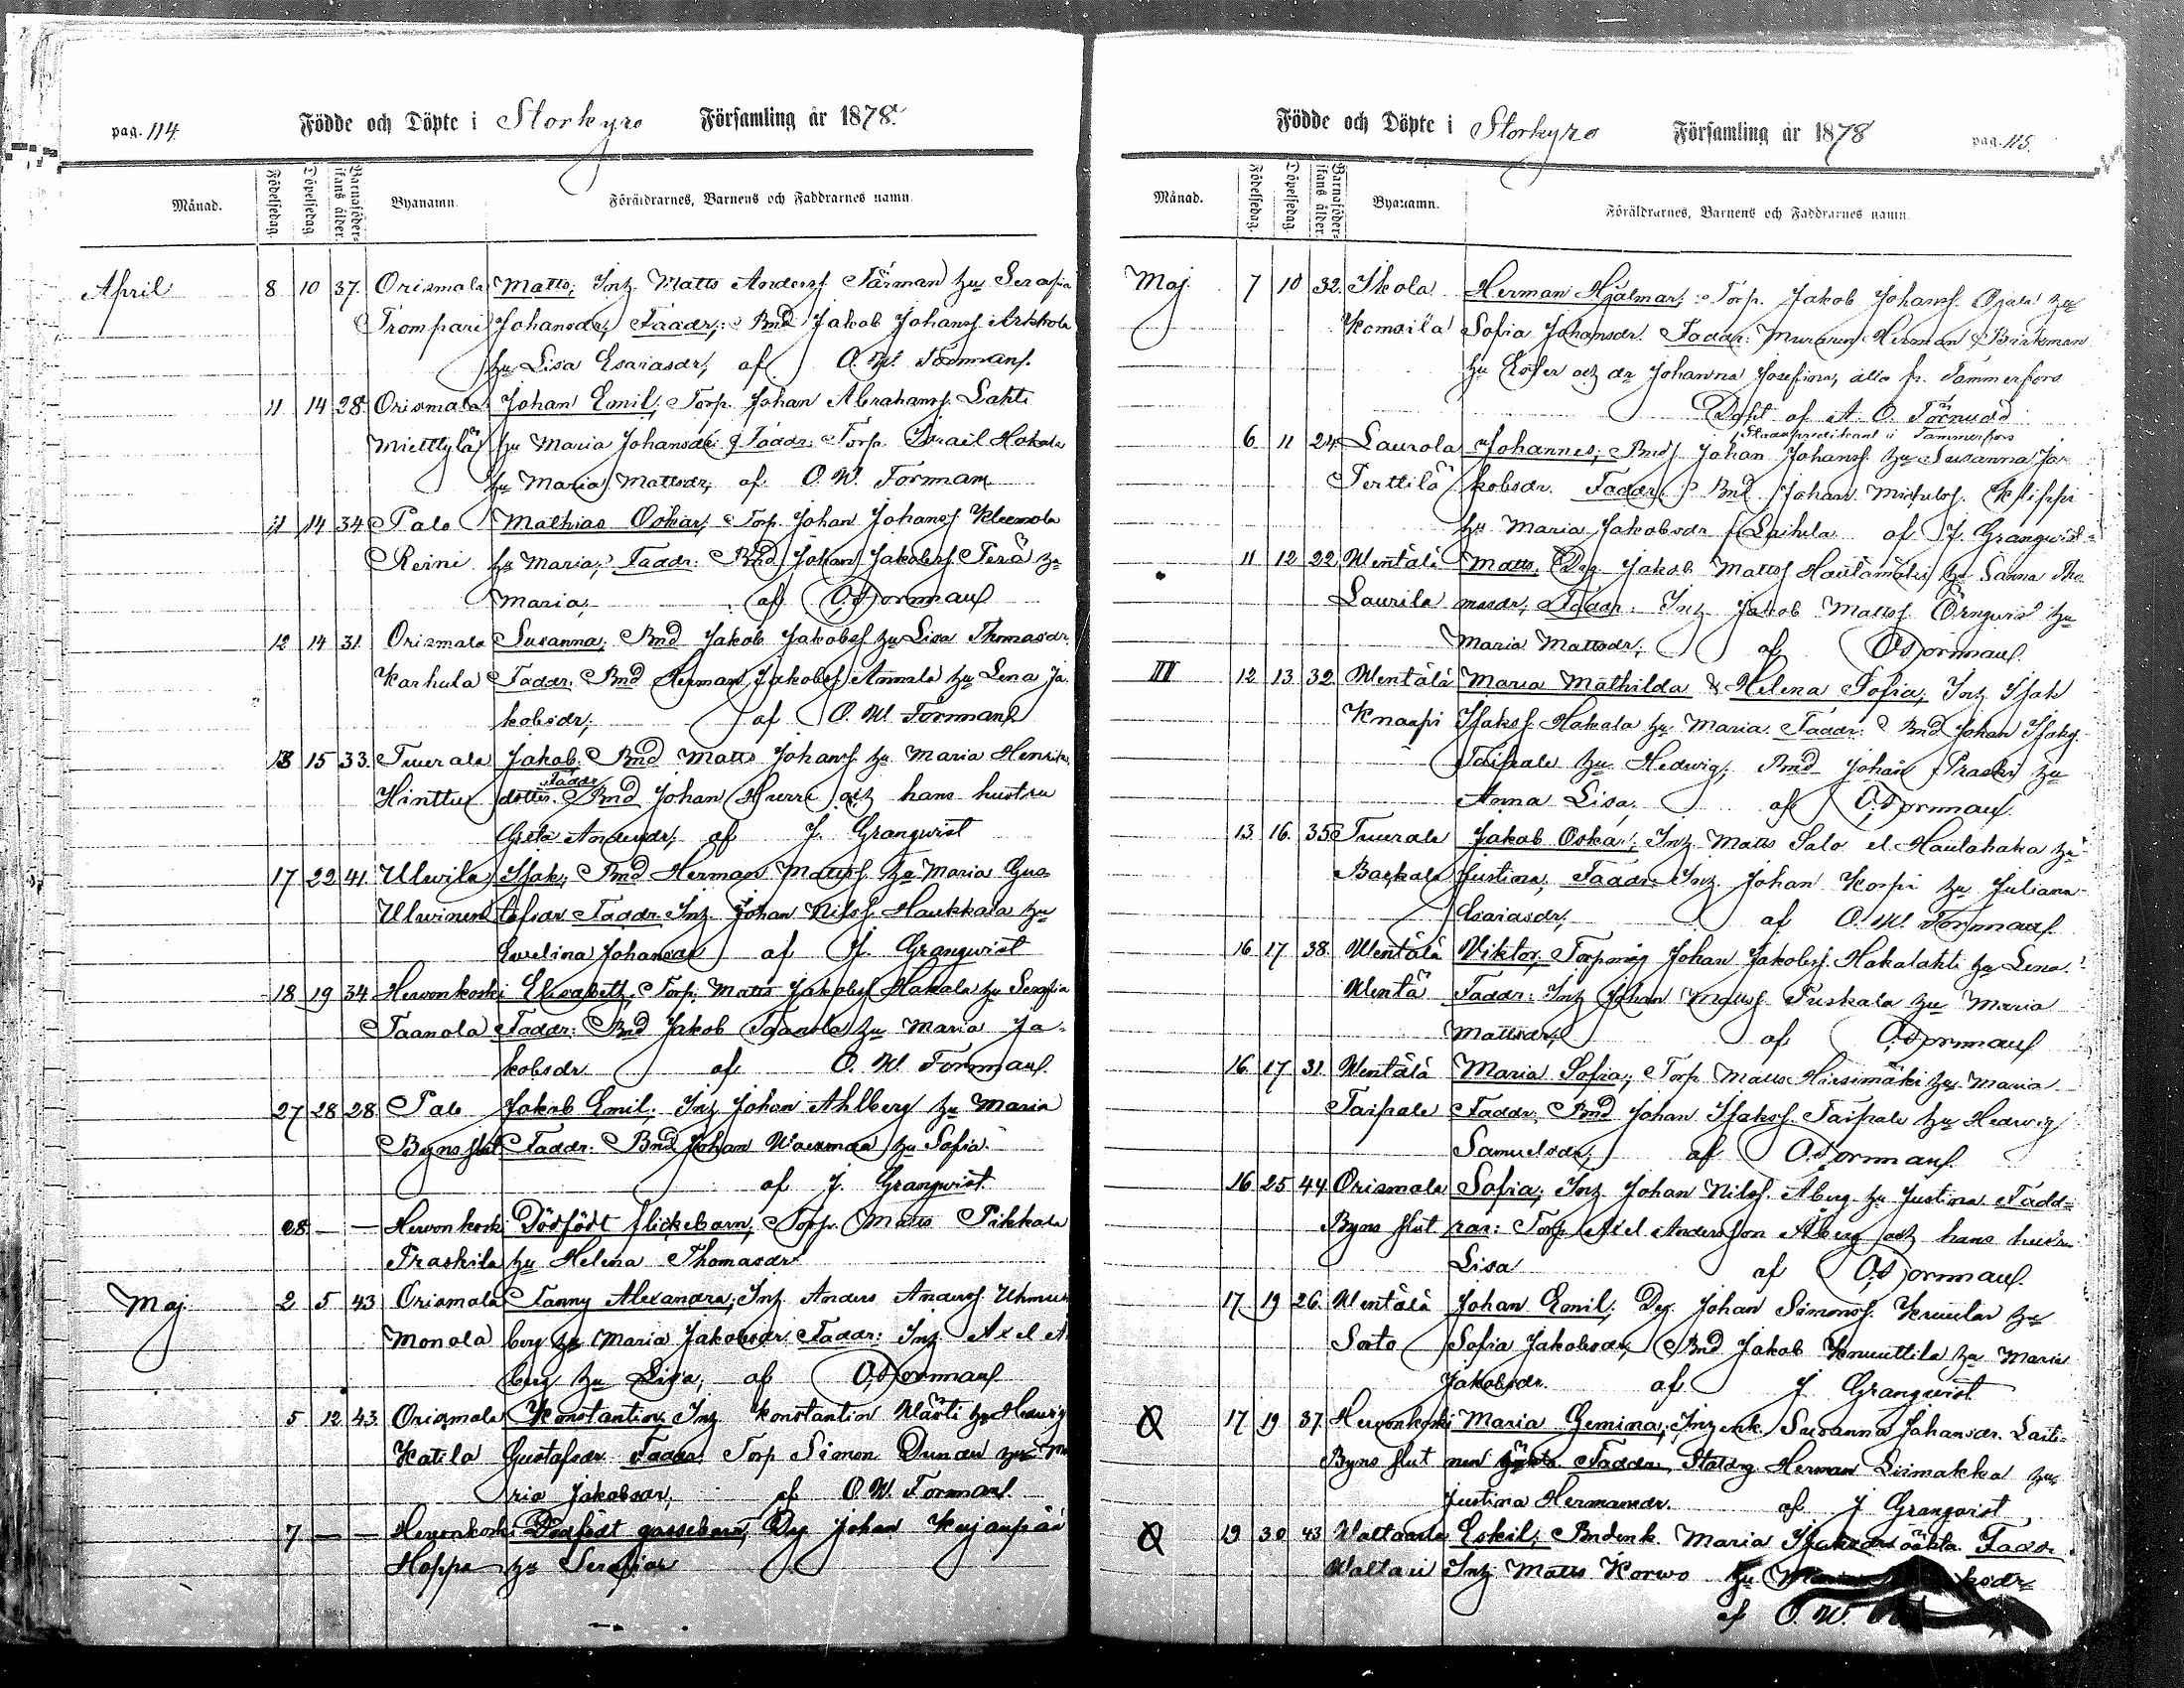 pag. 114.
Födde och Döpte i Storkyro Församling år 1878.
Månad. Födelsedag. Döpelsedag. Barnaföderskans ålder. Byanamn. Föräldrarnes, Barnens och Faddrarnes namn.
April 8 10 37. Orismala Matts; Inh. Matts Andersf Färman hu Serafia
Trompari Johansdr; Faddr; Bnd Jakob Johansf. Arkkola
hu Lisa Esaiasdr, af O. W. Forsmanf.
11 14 28. Orismala Johan Emil; Torp. Johan Abrahamsf. Lahti
Mielttylä hu Maria Johansdr; Faddr: Torp. Israil Hakala
hu Maria Mattsdr, af O. W. Forsman
11 14 34 Palo Mathias Oskar; Torp. Johan Johansf Kleemola
Reini hu Maria; Faddr: Bnd Johan Jakobsf Perä hu
Maria, af
12 14 31. Orismala Susanna; Bnd Jakob Jakobsf hu Lisa Thomasdr.
Karhula Faddr. Bnd Herman Jakobsf Annala hu Lena Ja
kobsdr; af O. W. Forsmanf
13 15 33. Tuurala Jakob. Bnd Matts Johansf. hu Maria Henriks
Hinttu dotter. Faddr Bnd Johan Hurri och hans hustru
Greta Andersdr, af J. Granqvist
17 22 41 Ulwila Isak; Bnd Herman Mattsf. hu Maria Gus
Ulwinen tafsdr Faddr. Inh Johan Nilsf. Haukkala hu
Ewelina Johansdr af J. Granqvist
18 19 34 Herwonkoski Elisabeth; Torp. Matts Jakobsf Hakala hu Serafia
Taanola Faddr: Bnd Jakob Taanola hu Maria Ja-
kobsdr af O. W. Forsmanf.
27 28 28. Palo Jakob Emil; Inh Johan Ahlberg hu Maria
Byns flut Faddr: Bnd Johan Waismaa hu Sofia
af J. Granqvist
28 — — Herwonkoski Dödfödt flickebarn; Torp. Matts Pikkala
Praskila hu Helena Thomasdr
Maj. 2 5 43 Orismala Fanny Alexandra; Inh Anders Andersf.
Monola berg hu Maria Jakobsdr. Faddr: Inh. Axel Å
berg hu Lisa; af
5 12 43. Orismala Konstantin; Inh Konstantin Wästi hu Hedwig
Katila Gustafsdr Faddr: Torp Simon Dunder hu Ma
ria Jakobsdr, af O. W. Forsmanf.
7 — — Herwonkoski Dödfödt gossebarn; Dg Johan Kujanpää
Hoppa hu Serafia
Födde och Döpte i Storkyro Församling år 1878 pag. 115.
Månad. Födelsedag. Döpelsedag. Barnaföderskans ålder. Byanamn. Föräldrarnes, Barnens och Faddrarnes namn.
Maj. 7 10 32. Ikola Herman Hjalmar; Torp. Jakob Johansf. Ojala hu
Komsila Sofia Johansdr. Faddr: Muraren Herman Brinkman
hu Ester och dr Johanna Josefina, alla fr. Tammerfors
Döpt af A. O. Törnudd
Stadspredikant i Tammerfors
6 11 24. Laurola Johannes; Bnd Johan Johansf. hu Susanna Ja-
Perttilä kobsdr. Faddr: Bnd Johan Michelsf. Klippi
hu Maria Jakobsdr f. Laihela af J. Granqvist
11 12 22. Wentälä Matts; Dg. Jakob Mattsf Hautamäki hu Sanna Tho
Laurila masdr; Faddr: Inh Jakob Mattsf. Örnqvist hu
Maria Mattsdr; af
III 12 13 32. Wentälä Maria Mathilda & Helena Sofia; Inh Isak
Knaapi Isaksf. Hakala hu Maria. Faddr: Bnd Johan Isaksf.
Taipale hu Hedwig; Bnd Johan Praski hu
Anna Lisa; af
13 16. 35 Tuurala Jakob Oskar; Inh. Matts Salo el. Hautahaka hu
Backala Justina. Faddr: Inh. Johan Korpi hu Juliana
Esaiasdr; af O. W. Forsmanf.
16 17 38. Wentälä Wiktor; Johan Jakobsf. Hakalahti hu Lena.
Wentä Faddr: Inh Johan Mattsf. Puskala hu Maria
Mattsdr; af
16 17 31. Wentälä Maria Sofia; Torp. Matts Hirsimäki hu Maria
Taipale Faddr. Bnd Johan Isaksf. Taipale hu Hedwig
Samuelsdr; af
16 25 44 Orismala Sofia; Inh Johan Nilsf. Åberg hu Justina Fadd-
Byns flut rar: Torp Axel Andersson Åberg och hans hustru
Lisa af
17 19 26. Wentälä Johan Emil; Dg. Johan Simonsf. hu
Sorto Sofia Jakobsdr; Bnd Jakob Knuuttila hu Maria
Jakobsdr. af J Granqvist
17 19 37. Herwonkoski Maria Gemina; Inh enk. Susanna Johansdr. Laiti-
Byns flut nen Faddr. Herman Liimakka hu
Justina Hermansdr. af J Granqvist
19 30 43 Waltaala Eskil; Bndenk. Maria Isaksdr oäkta Faddr.
Waltari Inh. Matts Korwo hu
af O. W.